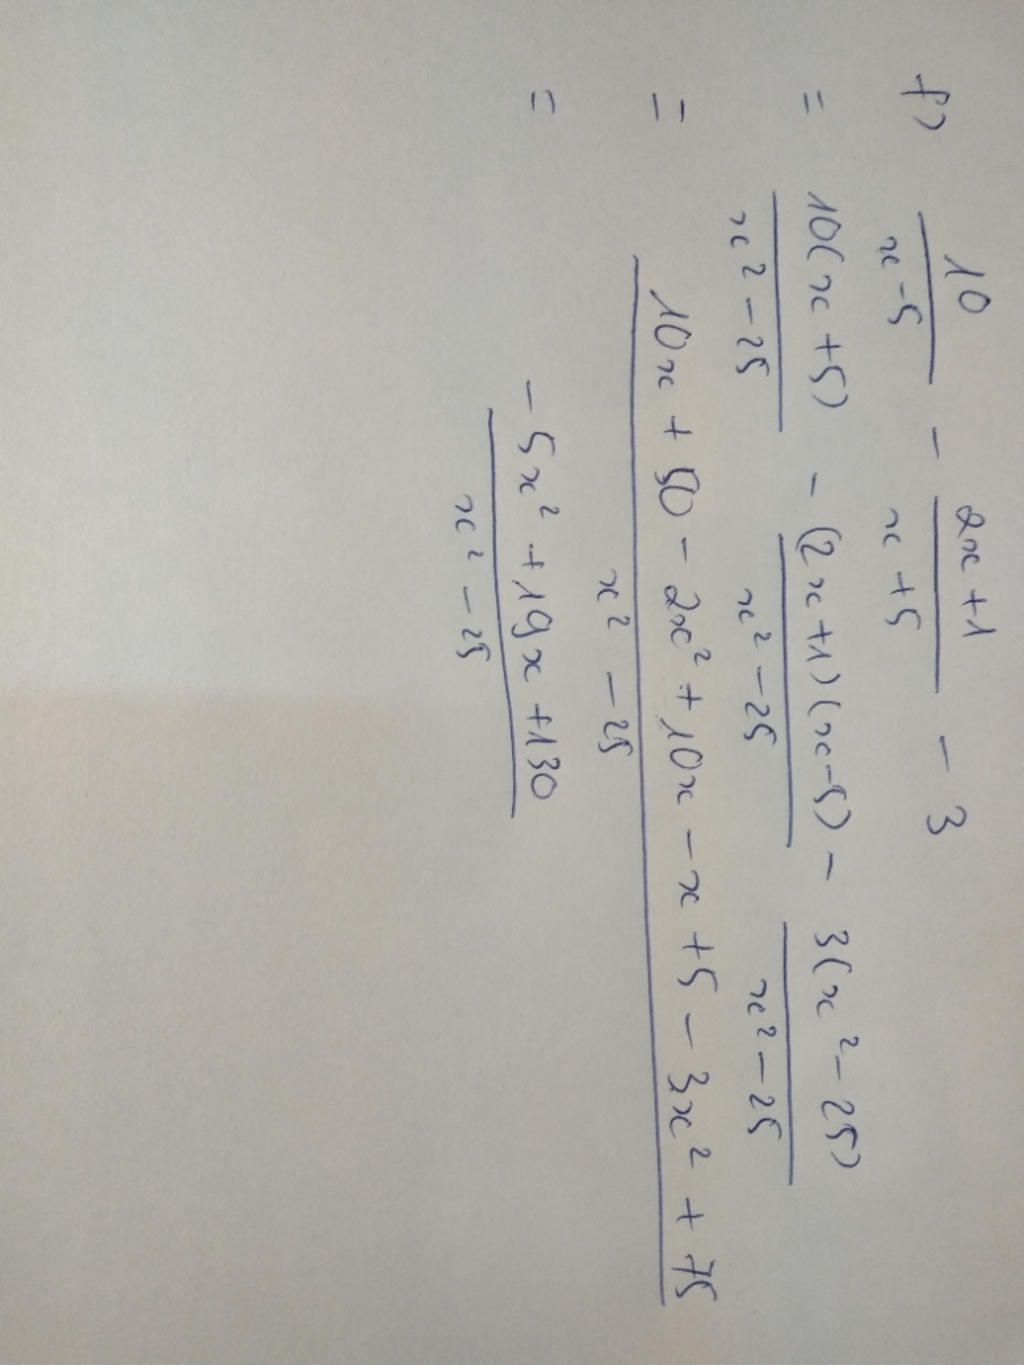 f) 10/(x-5) - (2x+1)/(x+5) - 3
= 10(x+5)/(x²-25) - (2x+1)(x-5)/(x²-25) - 3(x²-25)/(x²-25)
= (10x + 50 - 2x² + 10x - x + 5 - 3x² + 75)/(x² - 25)
= (-5x² + 19x + 130)/(x² - 25)